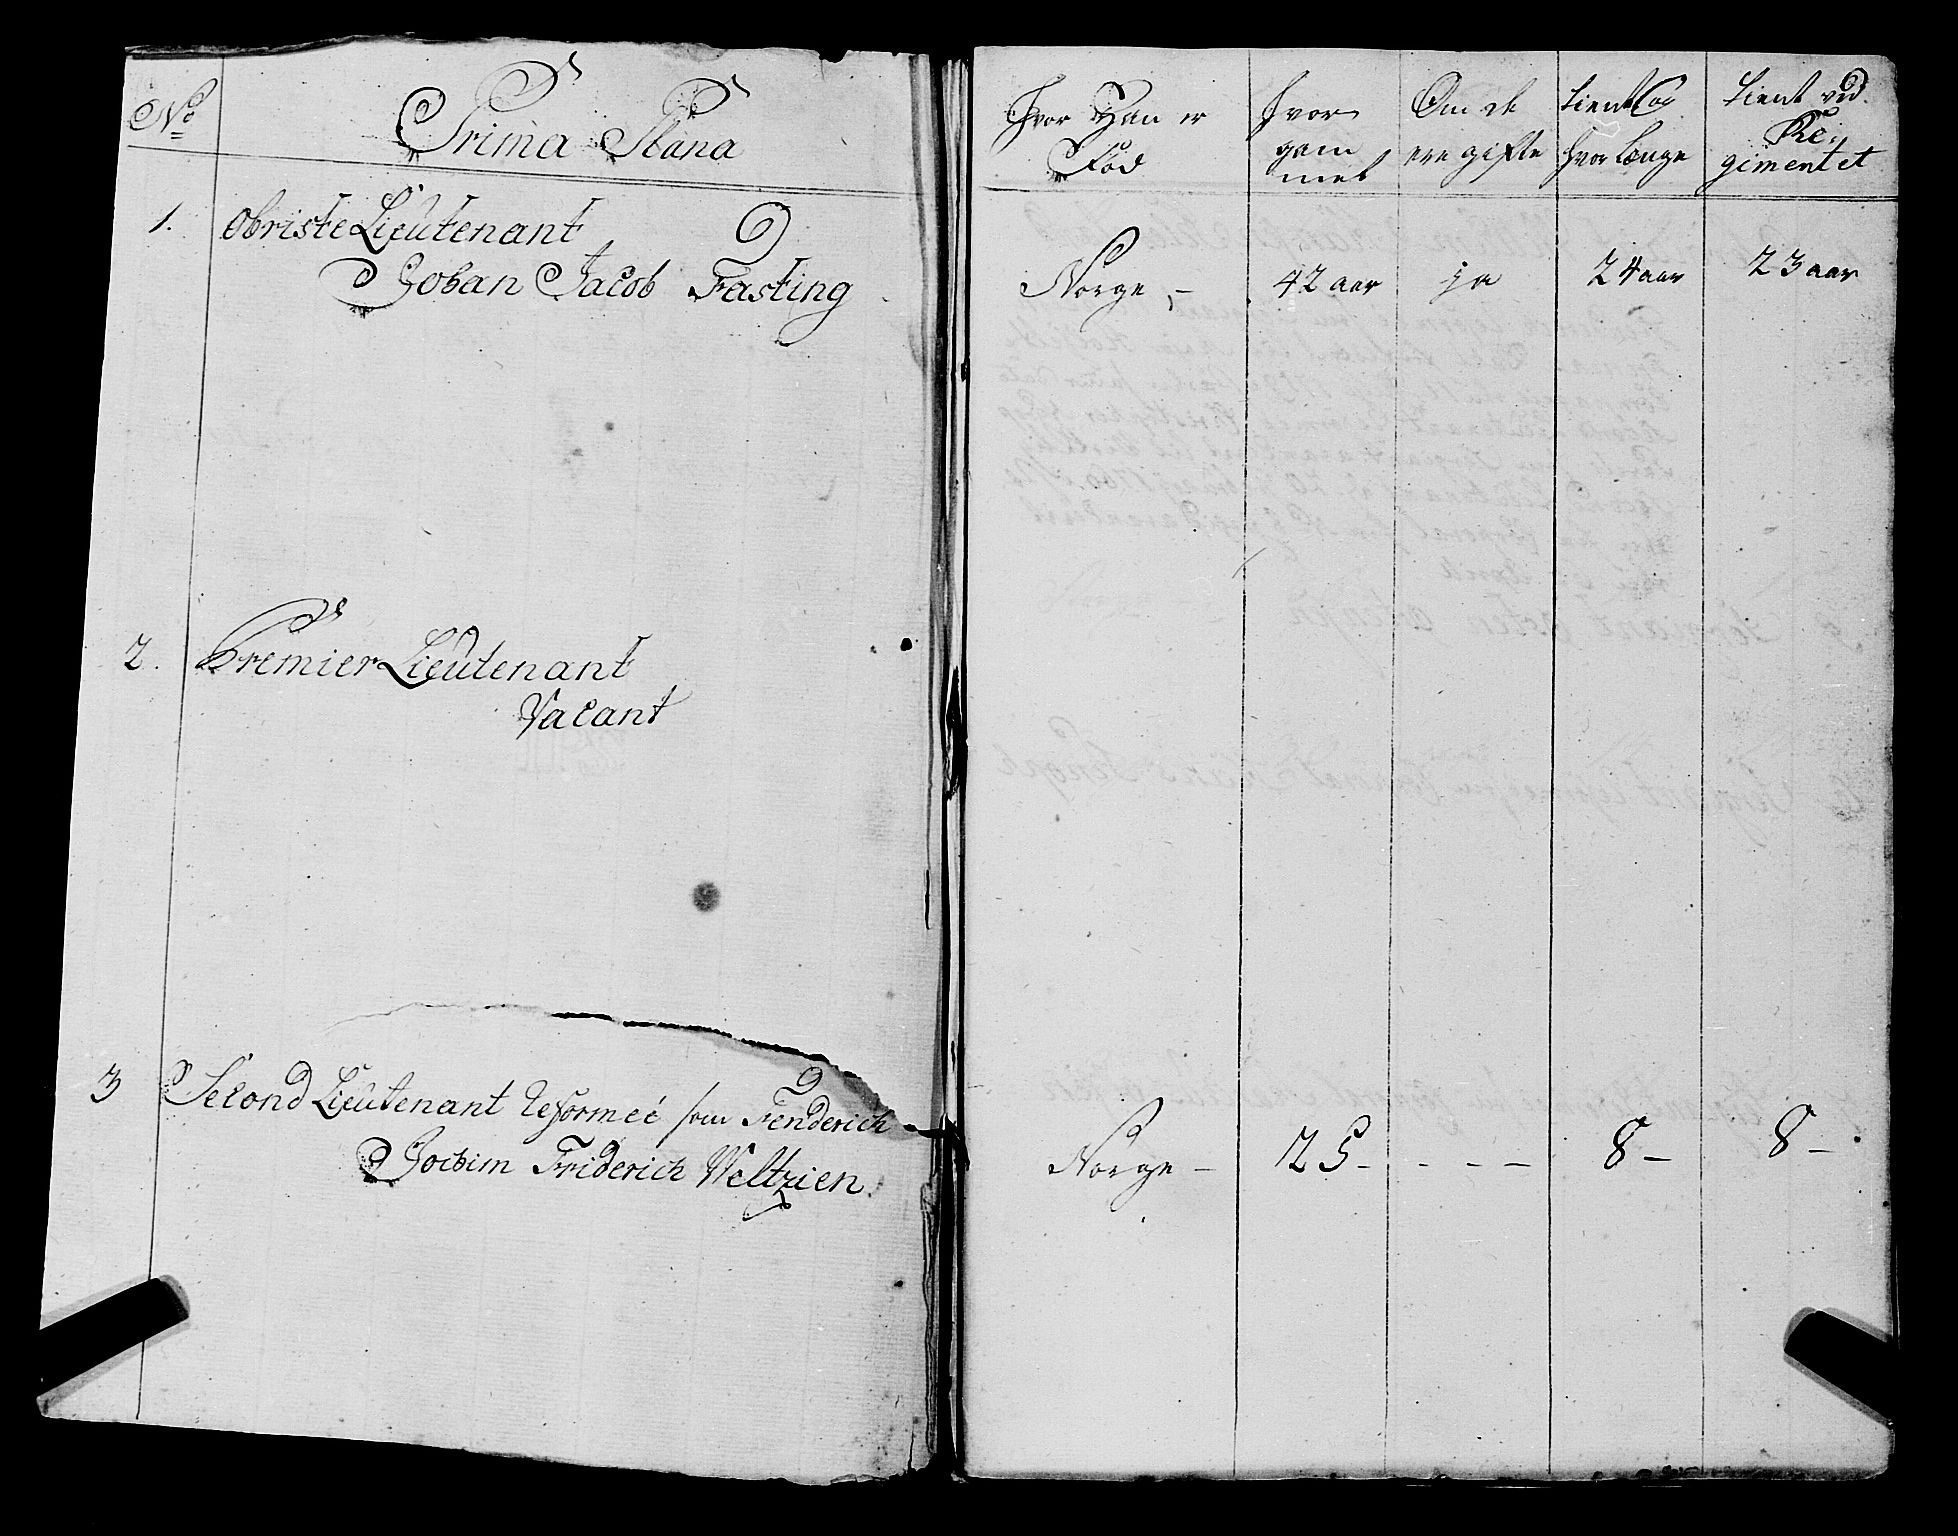 No
Prima Plana
1. Obriste Lieutenant
Johan Jacob Fasting
2. Premier Lieutenant
Vacant
3 Second Lieutenant Reformeé som Fenderich
Jochim Friderich Weltzien.
Hvor Han er
Fød
Hvor
gam
mel
Om de
ere gifte
tient og
hvor længe
tient ved
Re:
gimentet
Norge, – 42 aar ja 24 aar 23 aar
Norge – 25 – – – – 8 – 8 –